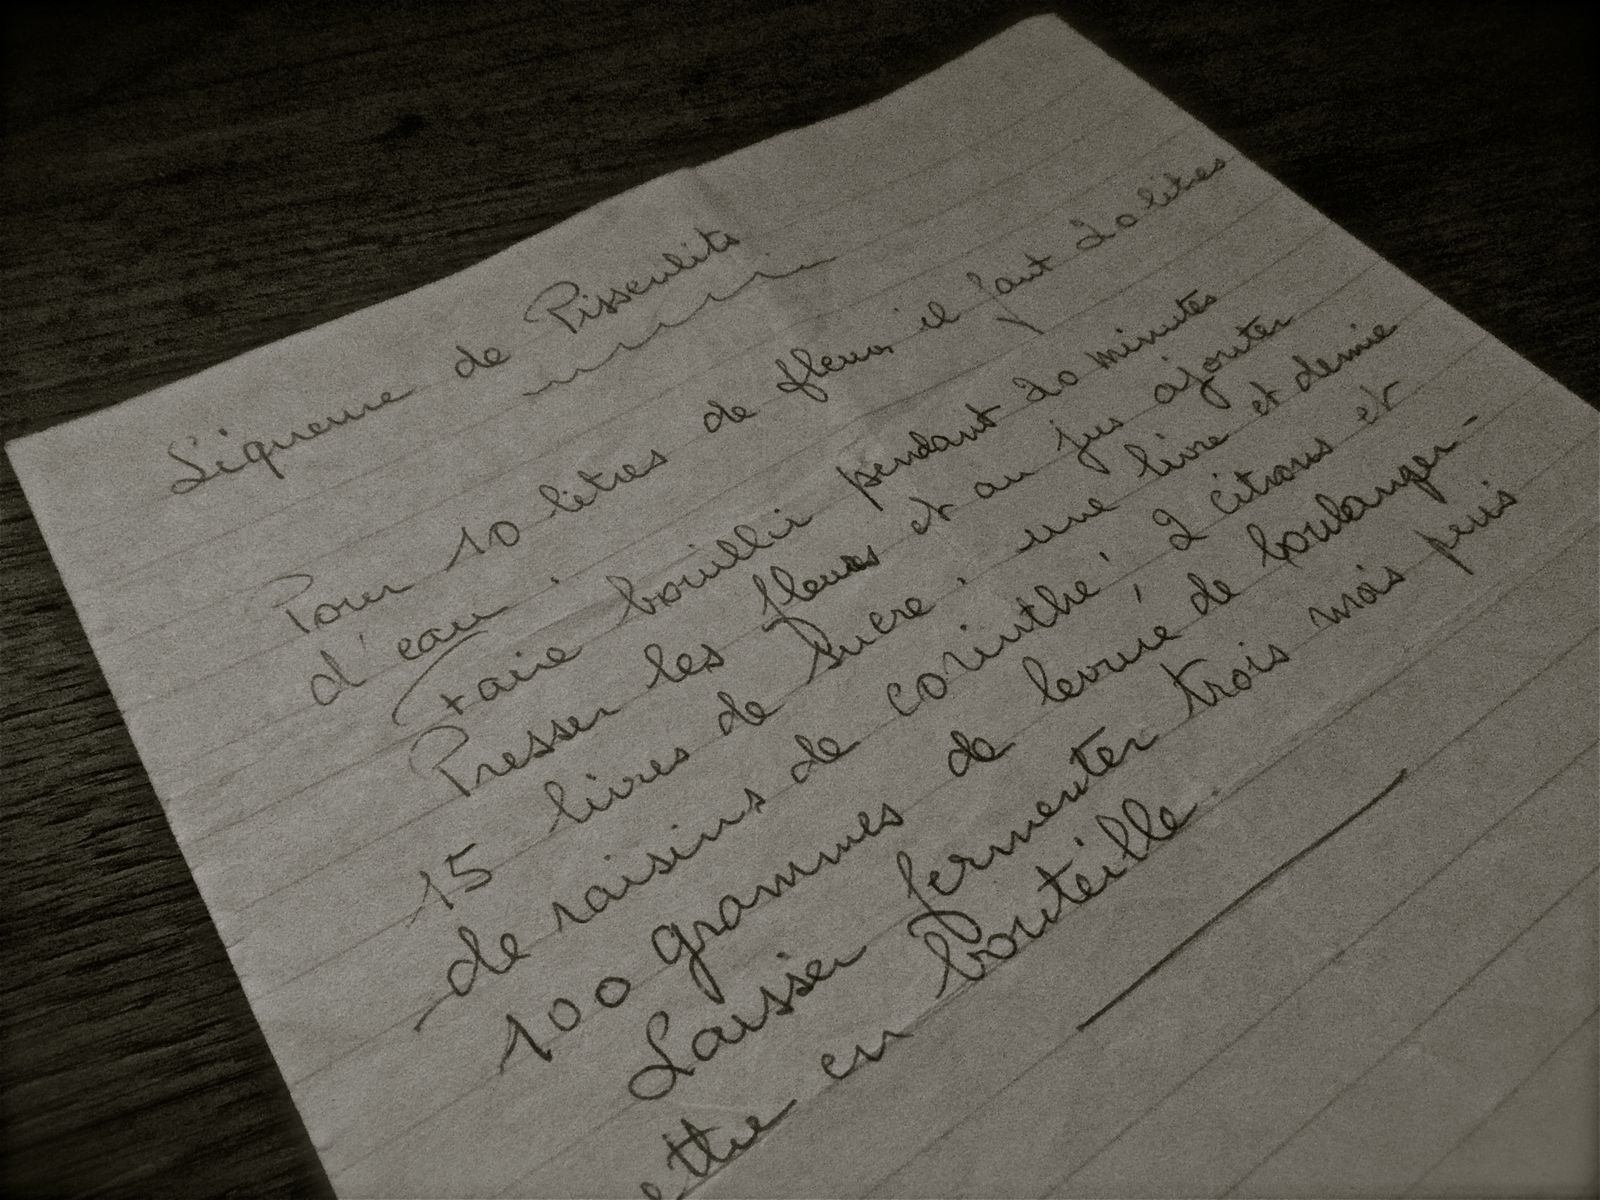 Liqueure de Pissenlits
Pour 10 litres de fleurs il faut 20 litres
d'eau.
Faire bouillir pendant 20 minutes
Presser les fleurs et au jus ajouter
15 livres de sucre, une livre et demie
de raisins de corinthe, 2 citrons et
100 grammes de levure de boulanger-
Laisser fermenter trois mois puis
ettre en bouteille.